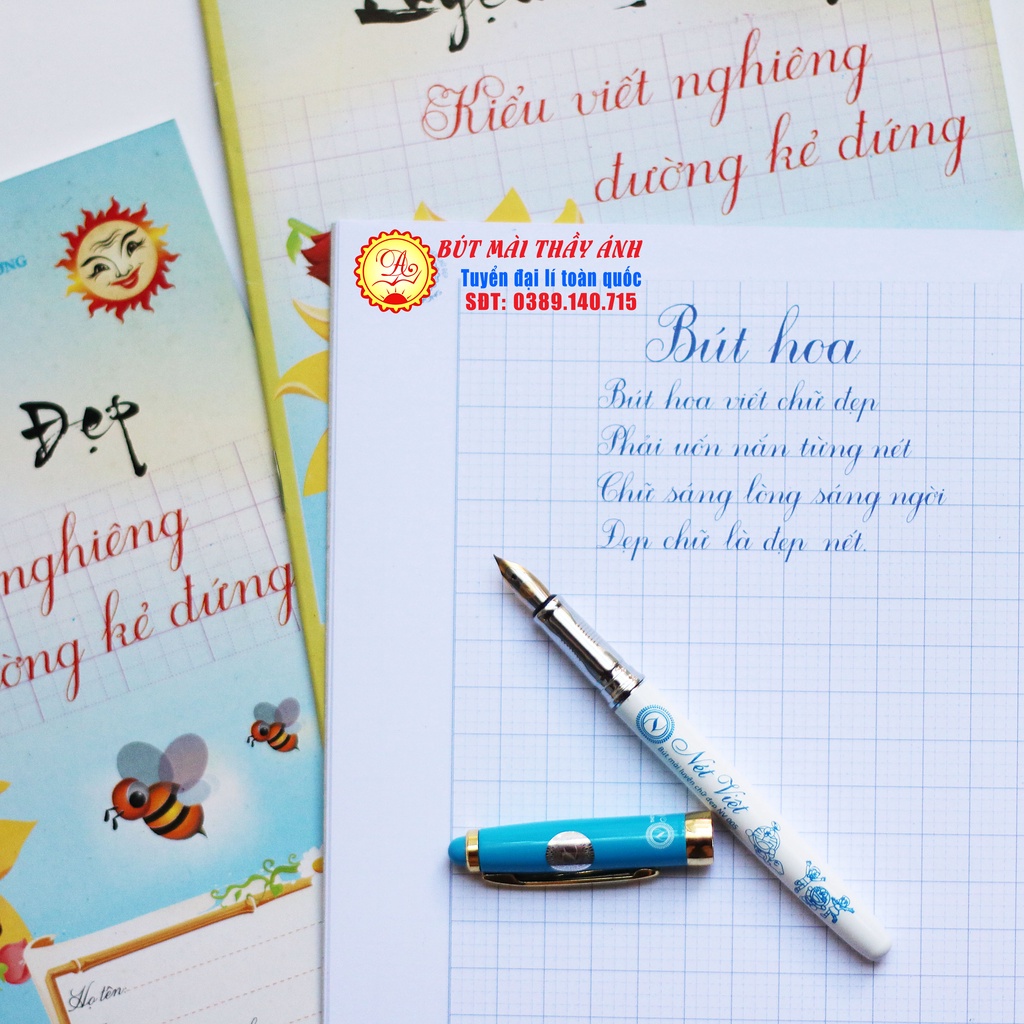 Kiểu viết nghiêng
đường kẻ đứng
BÚT MÀI THẦY ÁNH
Tuyển đại lí toàn quốc
SĐT: 0389.140.715
Bút hoa
Bút hoa viết chữ đẹp
Phải uốn nắn từng nét
Chữ sáng lòng sáng ngời
Đẹp chữ là đẹp nết.
Đẹp
nghiêng
kẻ đứng
Nét Việt
Bút mài luyện chữ đẹp
Họ tên